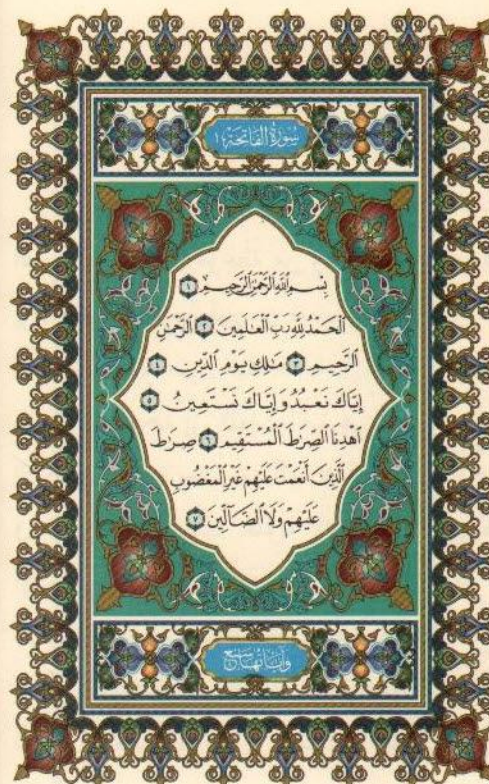 سُورَةُ الفَاتِحَة ١
بِسْمِ ٱللَّهِ ٱلرَّحْمَٰنِ ٱلرَّحِيمِ ١
ٱلْحَمْدُ لِلَّهِ رَبِّ ٱلْعَٰلَمِينَ ٢ ٱلرَّحْمَٰنِ
ٱلرَّحِيمِ ٣ مَٰلِكِ يَوْمِ ٱلدِّينِ ٤
إِيَّاكَ نَعْبُدُ وَإِيَّاكَ نَسْتَعِينُ ٥
ٱهْدِنَا ٱلصِّرَٰطَ ٱلْمُسْتَقِيمَ ٦ صِرَٰطَ
ٱلَّذِينَ أَنْعَمْتَ عَلَيْهِمْ غَيْرِ ٱلْمَغْضُوبِ
عَلَيْهِمْ وَلَا ٱلضَّآلِّينَ ٧
وَآيَاتُهَا سَبْعٌ